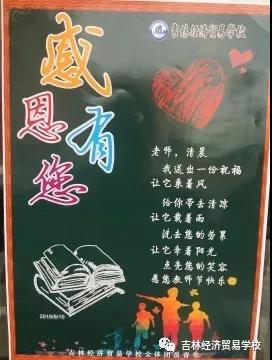 吉林经济贸易学校
感恩有您
老师，清晨
我送出一份祝福
让它乘着风
给你带去清凉
让它载着雨
洗去您的劳累
让它牵着阳光
点亮您的笑容
愿您教师节快乐
2019/9/10
吉林经济贸易学校全体团员青年
吉林经济贸易学校